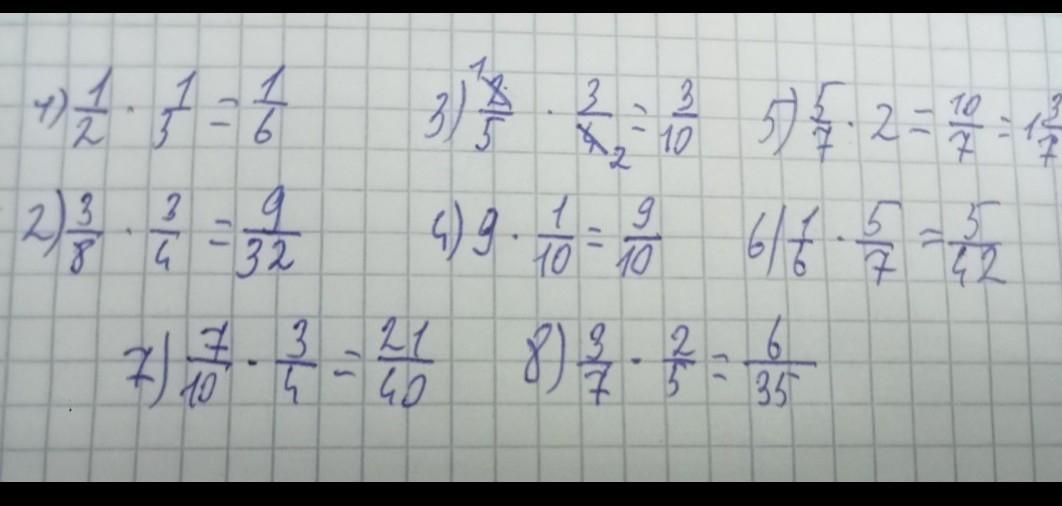 1) 1/2 · 1/3 = 1/6
3) 2/5 · 3/4 = 3/10
5) 5/7 · 2 = 10/7 = 1 3/7
2) 3/8 · 3/4 = 9/32
4) 9 · 1/10 = 9/10
6) 1/6 · 5/7 = 5/42
7) 7/10 · 3/4 = 21/40
8) 3/7 · 2/5 = 6/35